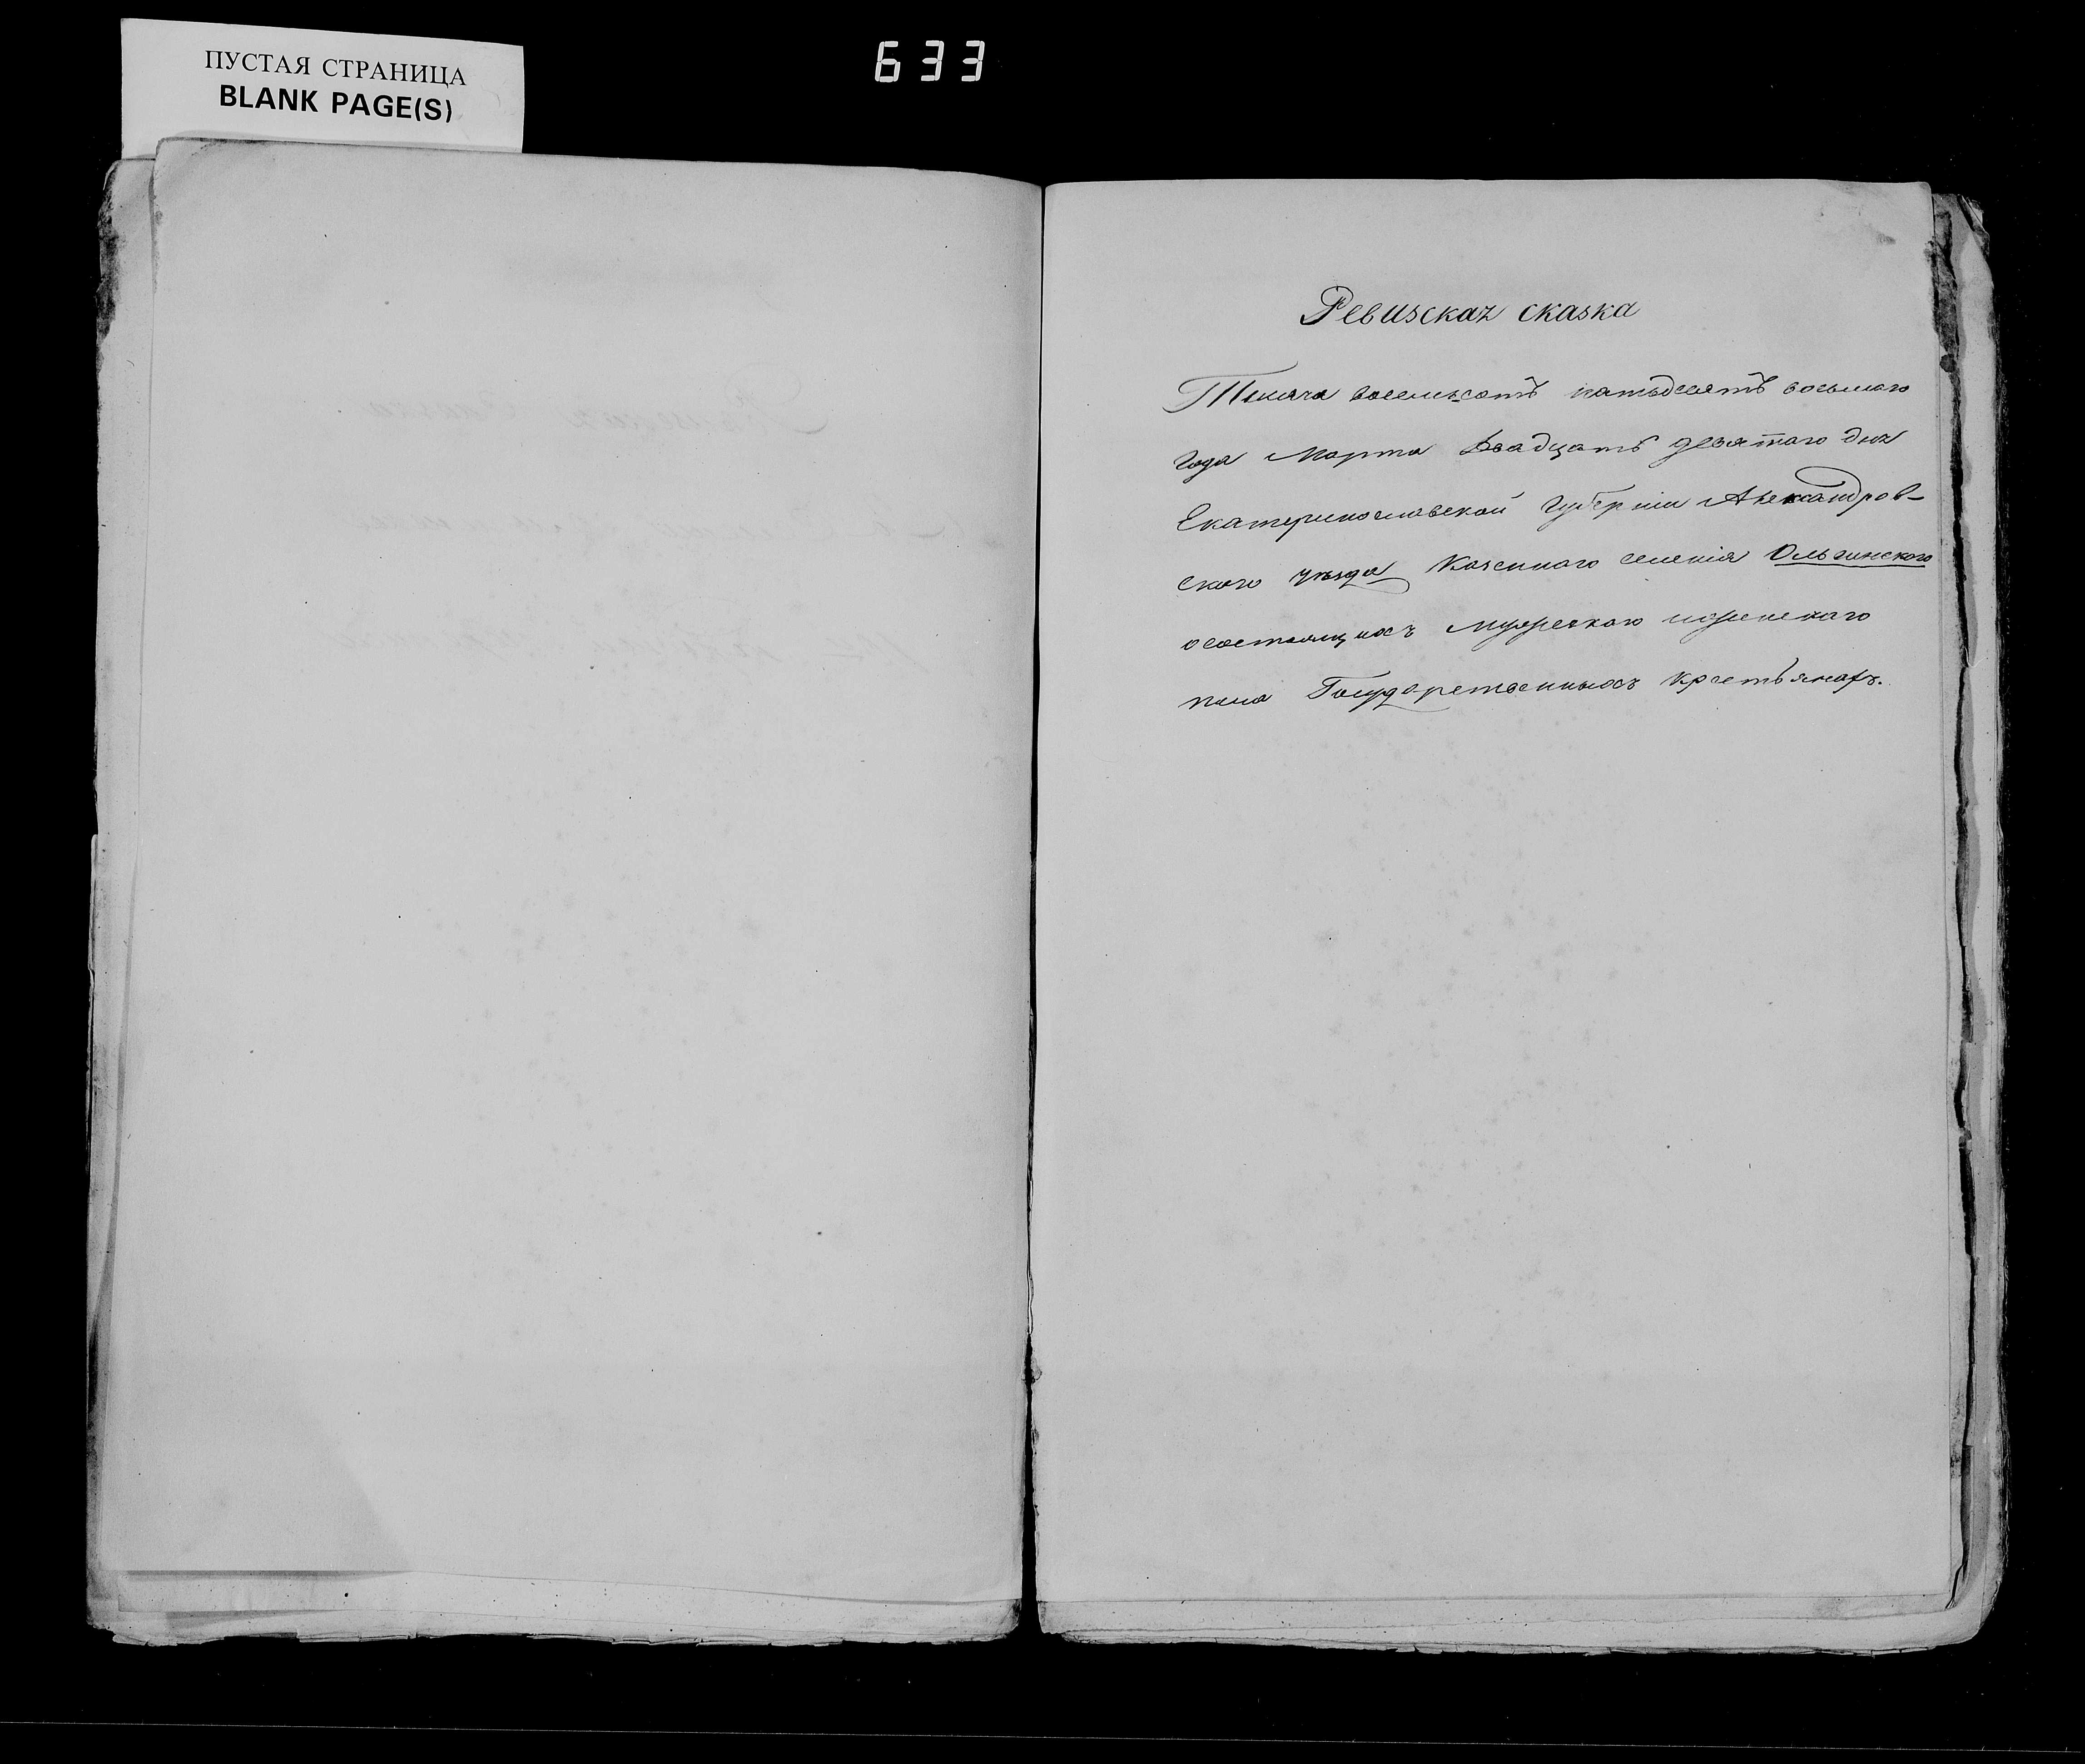 ПУСТАЯ СТРАНИЦА
BLANK PAGE(S)
633
Ревизская сказка
Тысяча восемьсотъ пятьдесятъ восьмаго
года Марта двадцать девятаго дня
Екатеринославской Губерніи Александров-
скаго уѣзда Казеннаго селенія Ольгинского
о состоящихъ мужескаго и женскаго
пола Государственныхъ крестьянахъ.